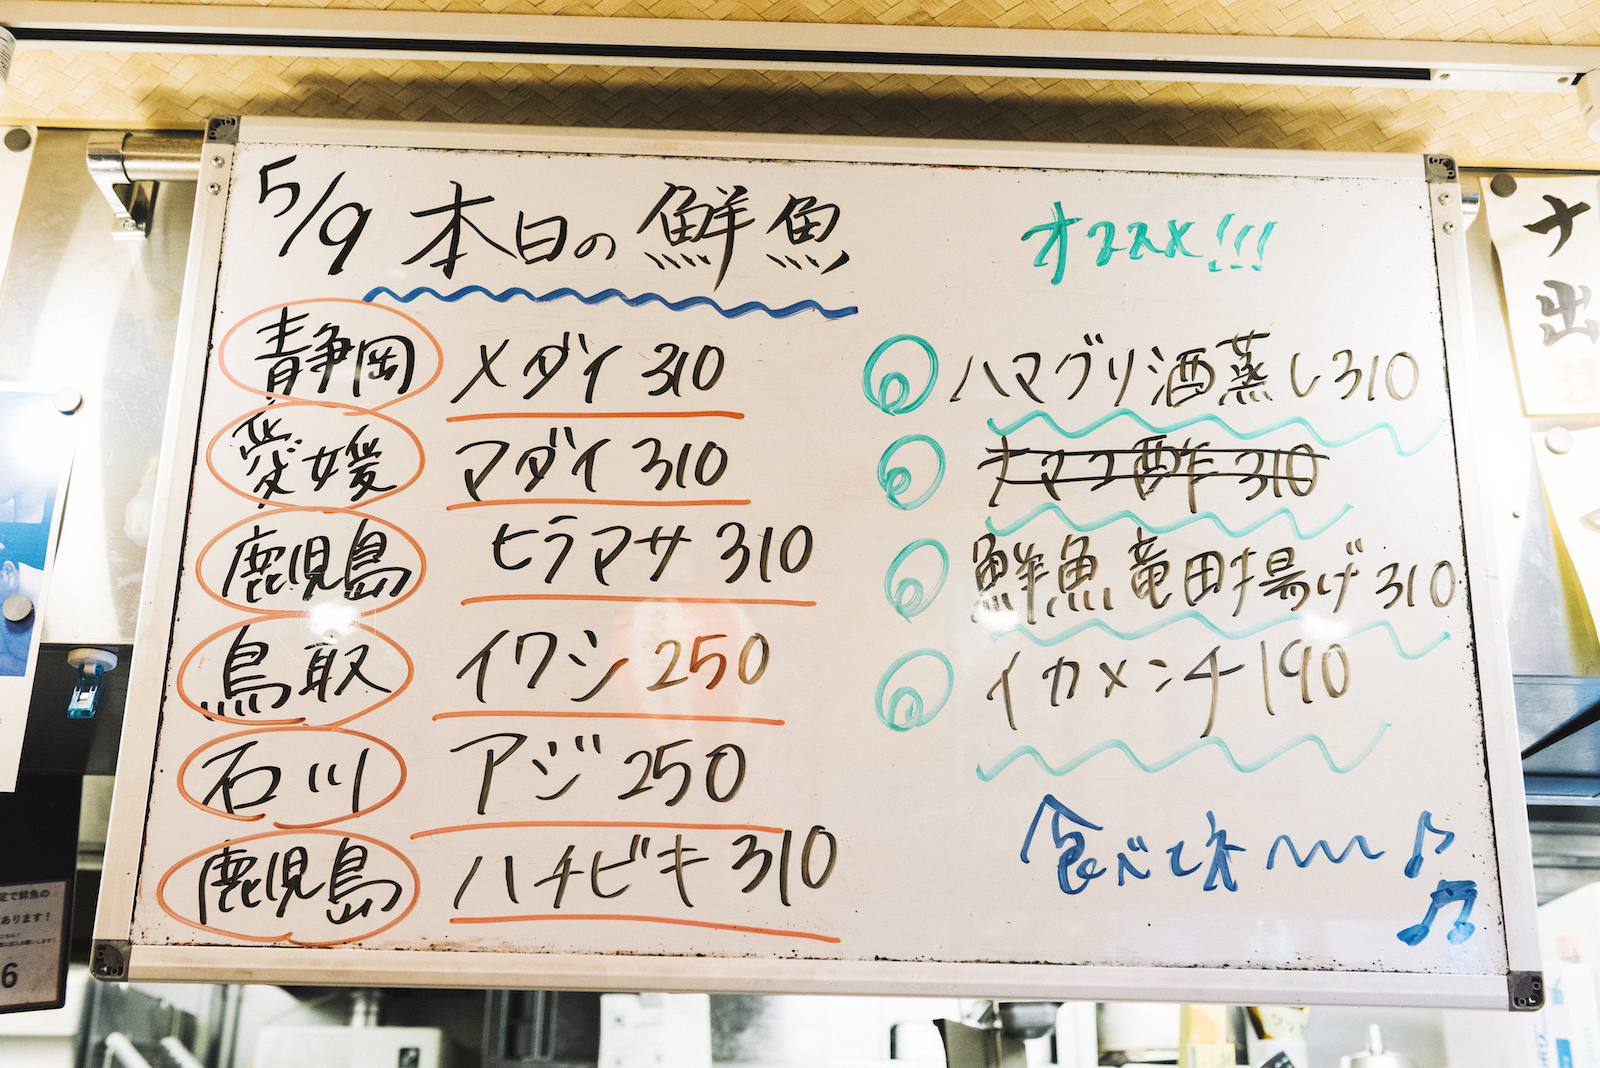 5/9 本日の鮮魚
静岡 メダイ 310
愛媛 マダイ 310
鹿児島 ヒラマサ 310
鳥取 イワシ 250
石川 アジ 250
鹿児島 ハチビキ 310
オススメ!!!
ハマグリ酒蒸し310
ナマコ酢 310
鮮魚竜田揚げ310
イカメンチ190
食べてネ〜〜♪♫
ナ
出
定で鮮魚の
あります!
6